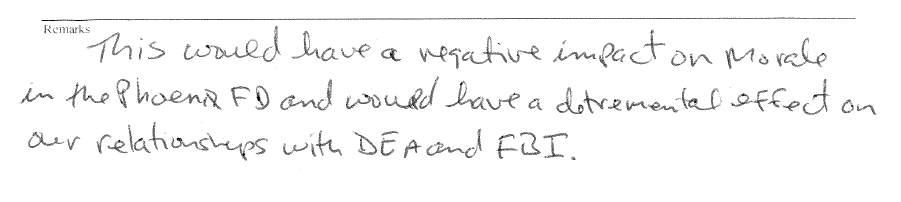 Remarks
This would have a negative impact on Morale
in the Phoenix FD and would have a detremental effect on
our relationships with DEA and FBI.